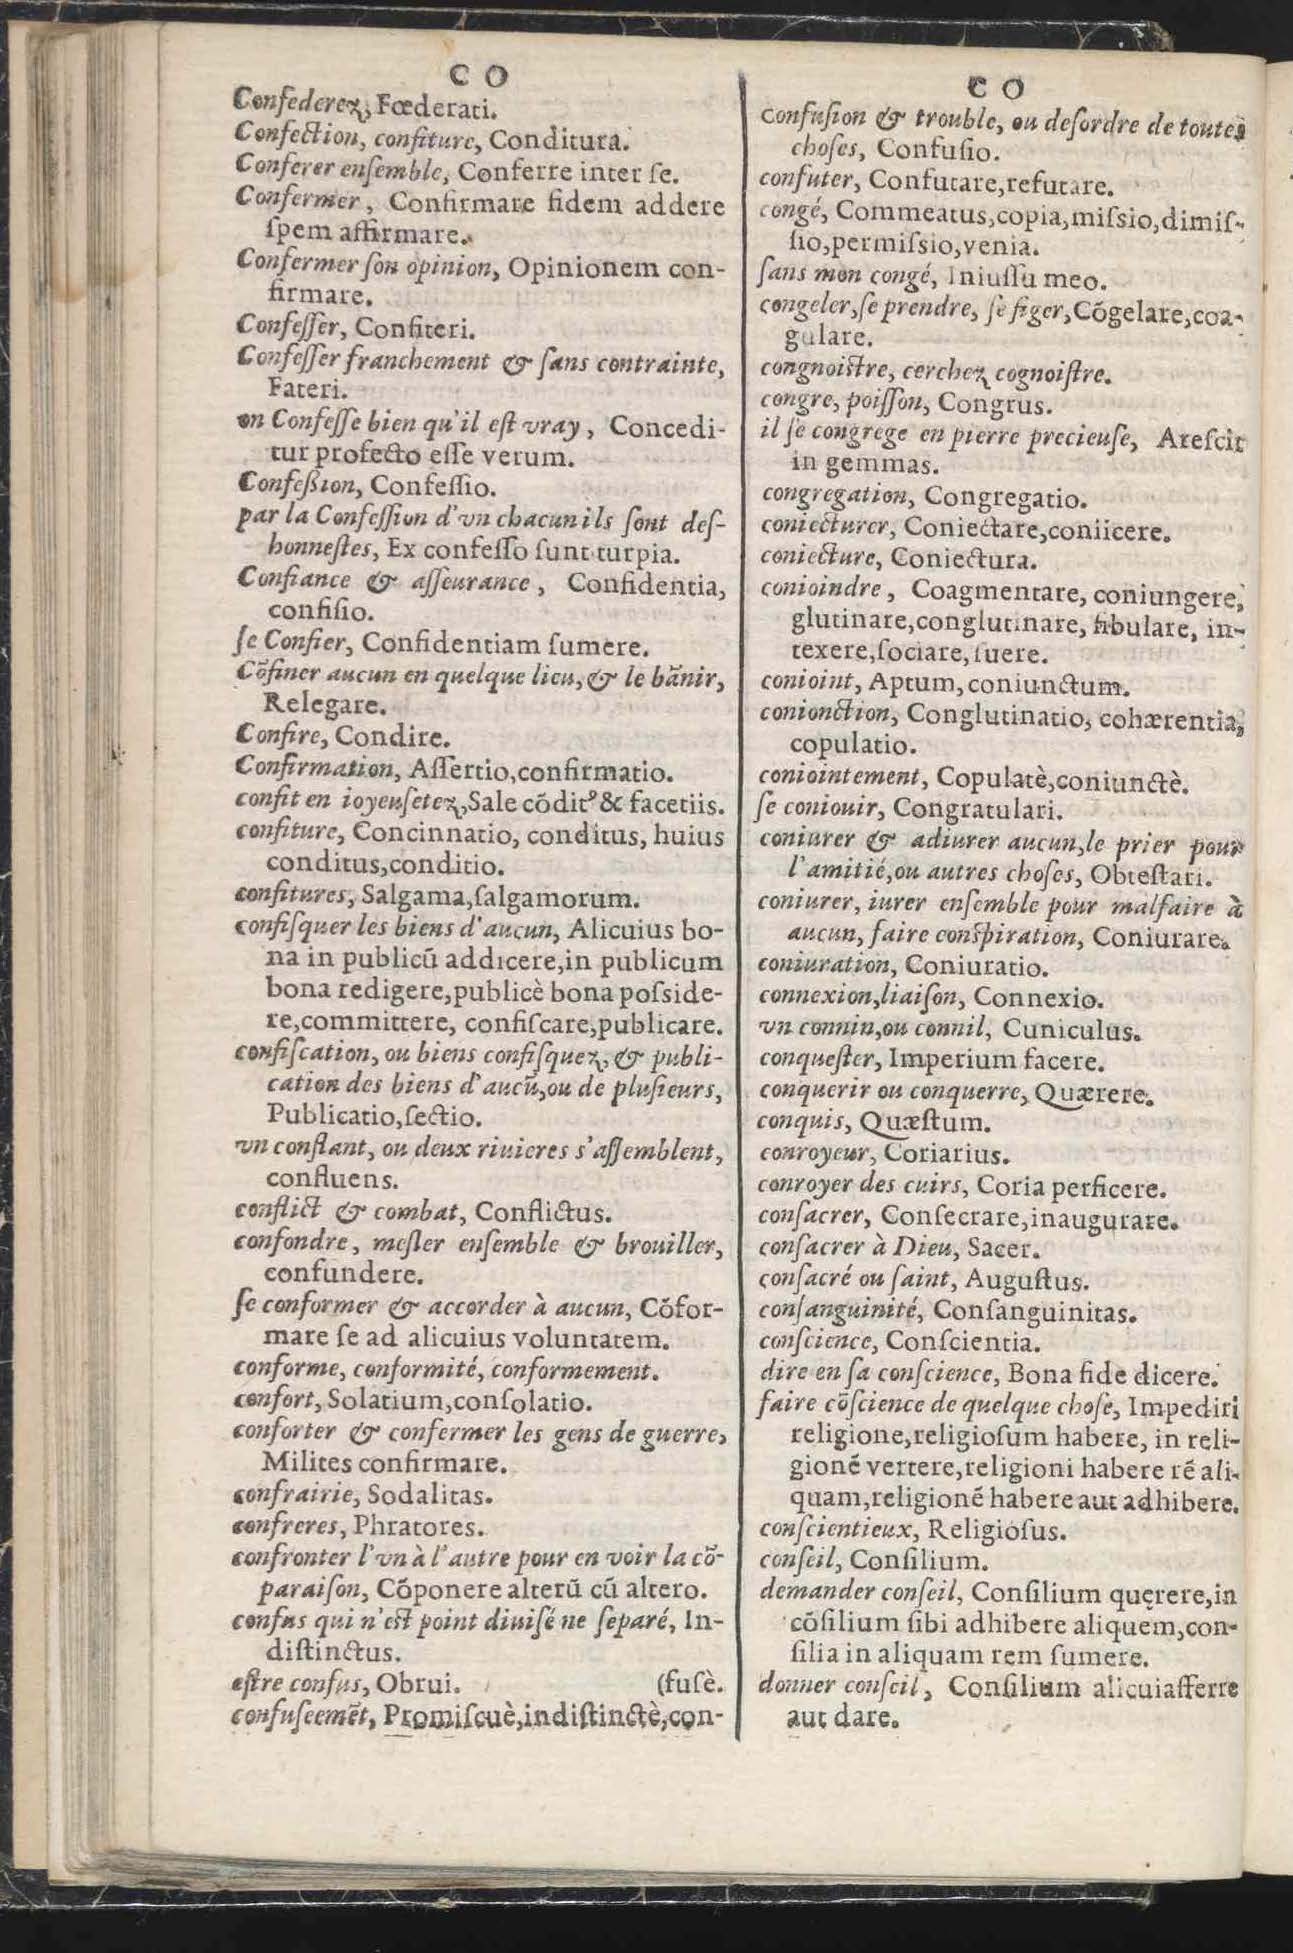 C O
Confederez, Fœderati.
Confection, confiture, Conditura.
Conferer enſemble, Conferre inter ſe.
Confermer, Confirmare fidem addere
ſpem affirmare.
Confermer ſon opinion, Opinionem con-
firmare.
Confeſſer, Confiteri.
Confeſſer franchement & ſans contrainte,
Fateri.
on Confeſſe bien qu'il eſt vray, Concedi-
tur profecto eſſe verum.
Confeßion, Confeſſio.
par la Confeſſion d'vn chacun ils ſont deſ-
honneſtes, Ex confeſſo ſunt turpia.
Confiance & aſſeurance, Confidentia,
confiſio.
ſe Confier, Confidentiam ſumere.
Cõfiner aucun en quelque lieu, & le bãnir,
Relegare.
Confire, Condire.
Confirmation, Aſſertio,confirmatio.
confit en ioyeuſetez, Sale cõditꝰ & facetiis.
confiture, Concinnatio, conditus, huius
conditus,conditio.
confitures, Salgama,ſalgamorum.
confiſquer les biens d'aucun, Alicuius bo-
na in publicũ addicere,in publicum
bona redigere,publicè bona poſside-
re,committere, confiſcare,publicare.
confiſcation, ou biens confiſquez, & publi-
cation des biens d'aucũ,ou de pluſieurs,
Publicatio,ſectio.
vn conflant, ou deux riuieres s'aſſemblent,
confluens.
conflict & combat, Conflictus.
confondre, meſler enſemble & brouiller,
confundere.
ſe conformer & accorder à aucun, Cõfor-
mare ſe ad alicuius voluntatem.
conforme, conformité, conformement.
confort, Solatium,conſolatio.
conforter & confermer les gens de guerre,
Milites confirmare.
confrairie, Sodalitas.
confreres, Phratores.
confronter l'vn à l'autre pour en voir la cõ-
paraiſon, Cõponere alterũ cũ altero.
confus qui n'eſt point diuiſé ne ſeparé, In-
diſtinctus.
eſtre confus, Obrui. (fuſè.
confuſeemẽt, Promiſcuè,indiſtinctè,con-
C O
Confuſion & trouble, ou deſordre de toutes
choſes, Confuſio.
confuter, Confutare,refutare.
congé, Commeatus,copia,miſsio,dimiſ-
ſio,permiſsio,venia.
ſans mon congé, Iniuſſu meo.
congeler,ſe prendre, ſe figer,Cõgelare,coa-
gulare.
congnoiſtre, cerchez cognoiſtre.
congre, poiſſon, Congrus.
il ſe congrege en pierre precieuſe, Areſcit
in gemmas.
congregation, Congregatio.
coniecturer, Coniectare,coniicere.
coniecture, Coniectura.
conioindre, Coagmentare, coniungere,
glutinare,conglutinare, fibulare, in-
texere,ſociare,ſuere.
conioint, Aptum,coniunctum.
conionction, Conglutinatio, cohærentia,
copulatio.
coniointement, Copulatè,coniunctè.
ſe coniouir, Congratulari.
coniurer & adiurer aucun,le prier pour
l'amitié,ou autres choſes, Obteſtari.
coniurer, iurer enſemble pour malfaire à
aucun, faire conſpiration, Coniurare.
coniuration, Coniuratio.
connexion,liaiſon, Connexio.
vn connin,ou connil, Cuniculus.
conqueſter, Imperium facere.
conquerir ou conquerre, Quærere.
conquis, Quæſtum.
conroyeur, Coriarius.
conroyer des cuirs, Coria perficere.
conſacrer, Conſecrare,inaugurare.
conſacrer à Dieu, Sacer.
conſacré ou ſaint, Auguſtus.
conſanguinité, Conſanguinitas.
conſcience, Conſcientia.
dire en ſa conſcience, Bona fide dicere.
faire cõſcience de quelque choſe, Impediri
religione,religioſum habere, in reli-
gionẽ vertere,religioni habere rẽ ali-
quam,religionẽ habere aut adhibere.
conſcientieux, Religioſus.
conſeil, Conſilium.
demander conſeil, Conſilium quęrere,in
cõſilium ſibi adhibere aliquem,con-
ſilia in aliquam rem ſumere.
donner conſeil, Conſilium alicui afferre
aut dare.